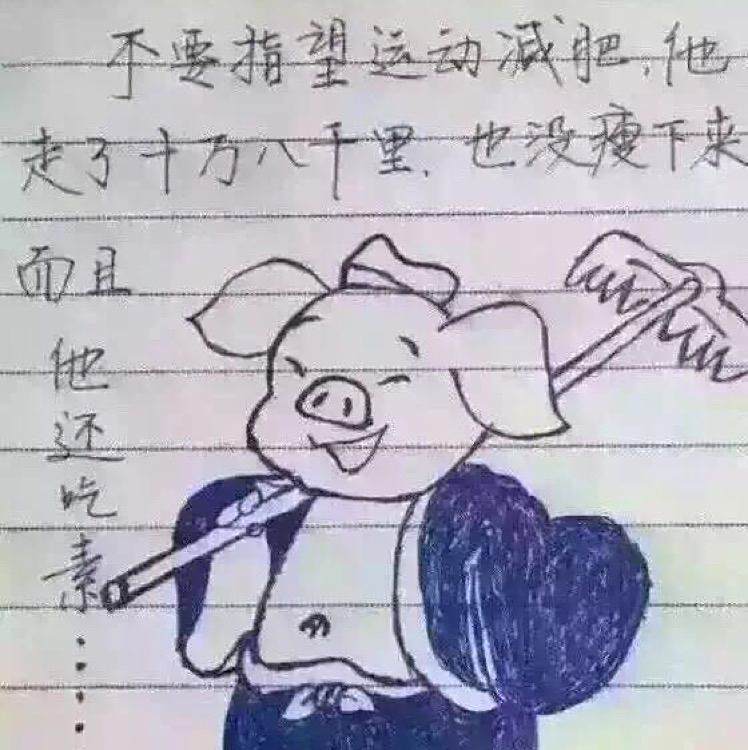 不要指望运动减肥,他
走了十万八千里,也没瘦下来
而且
他还吃素……